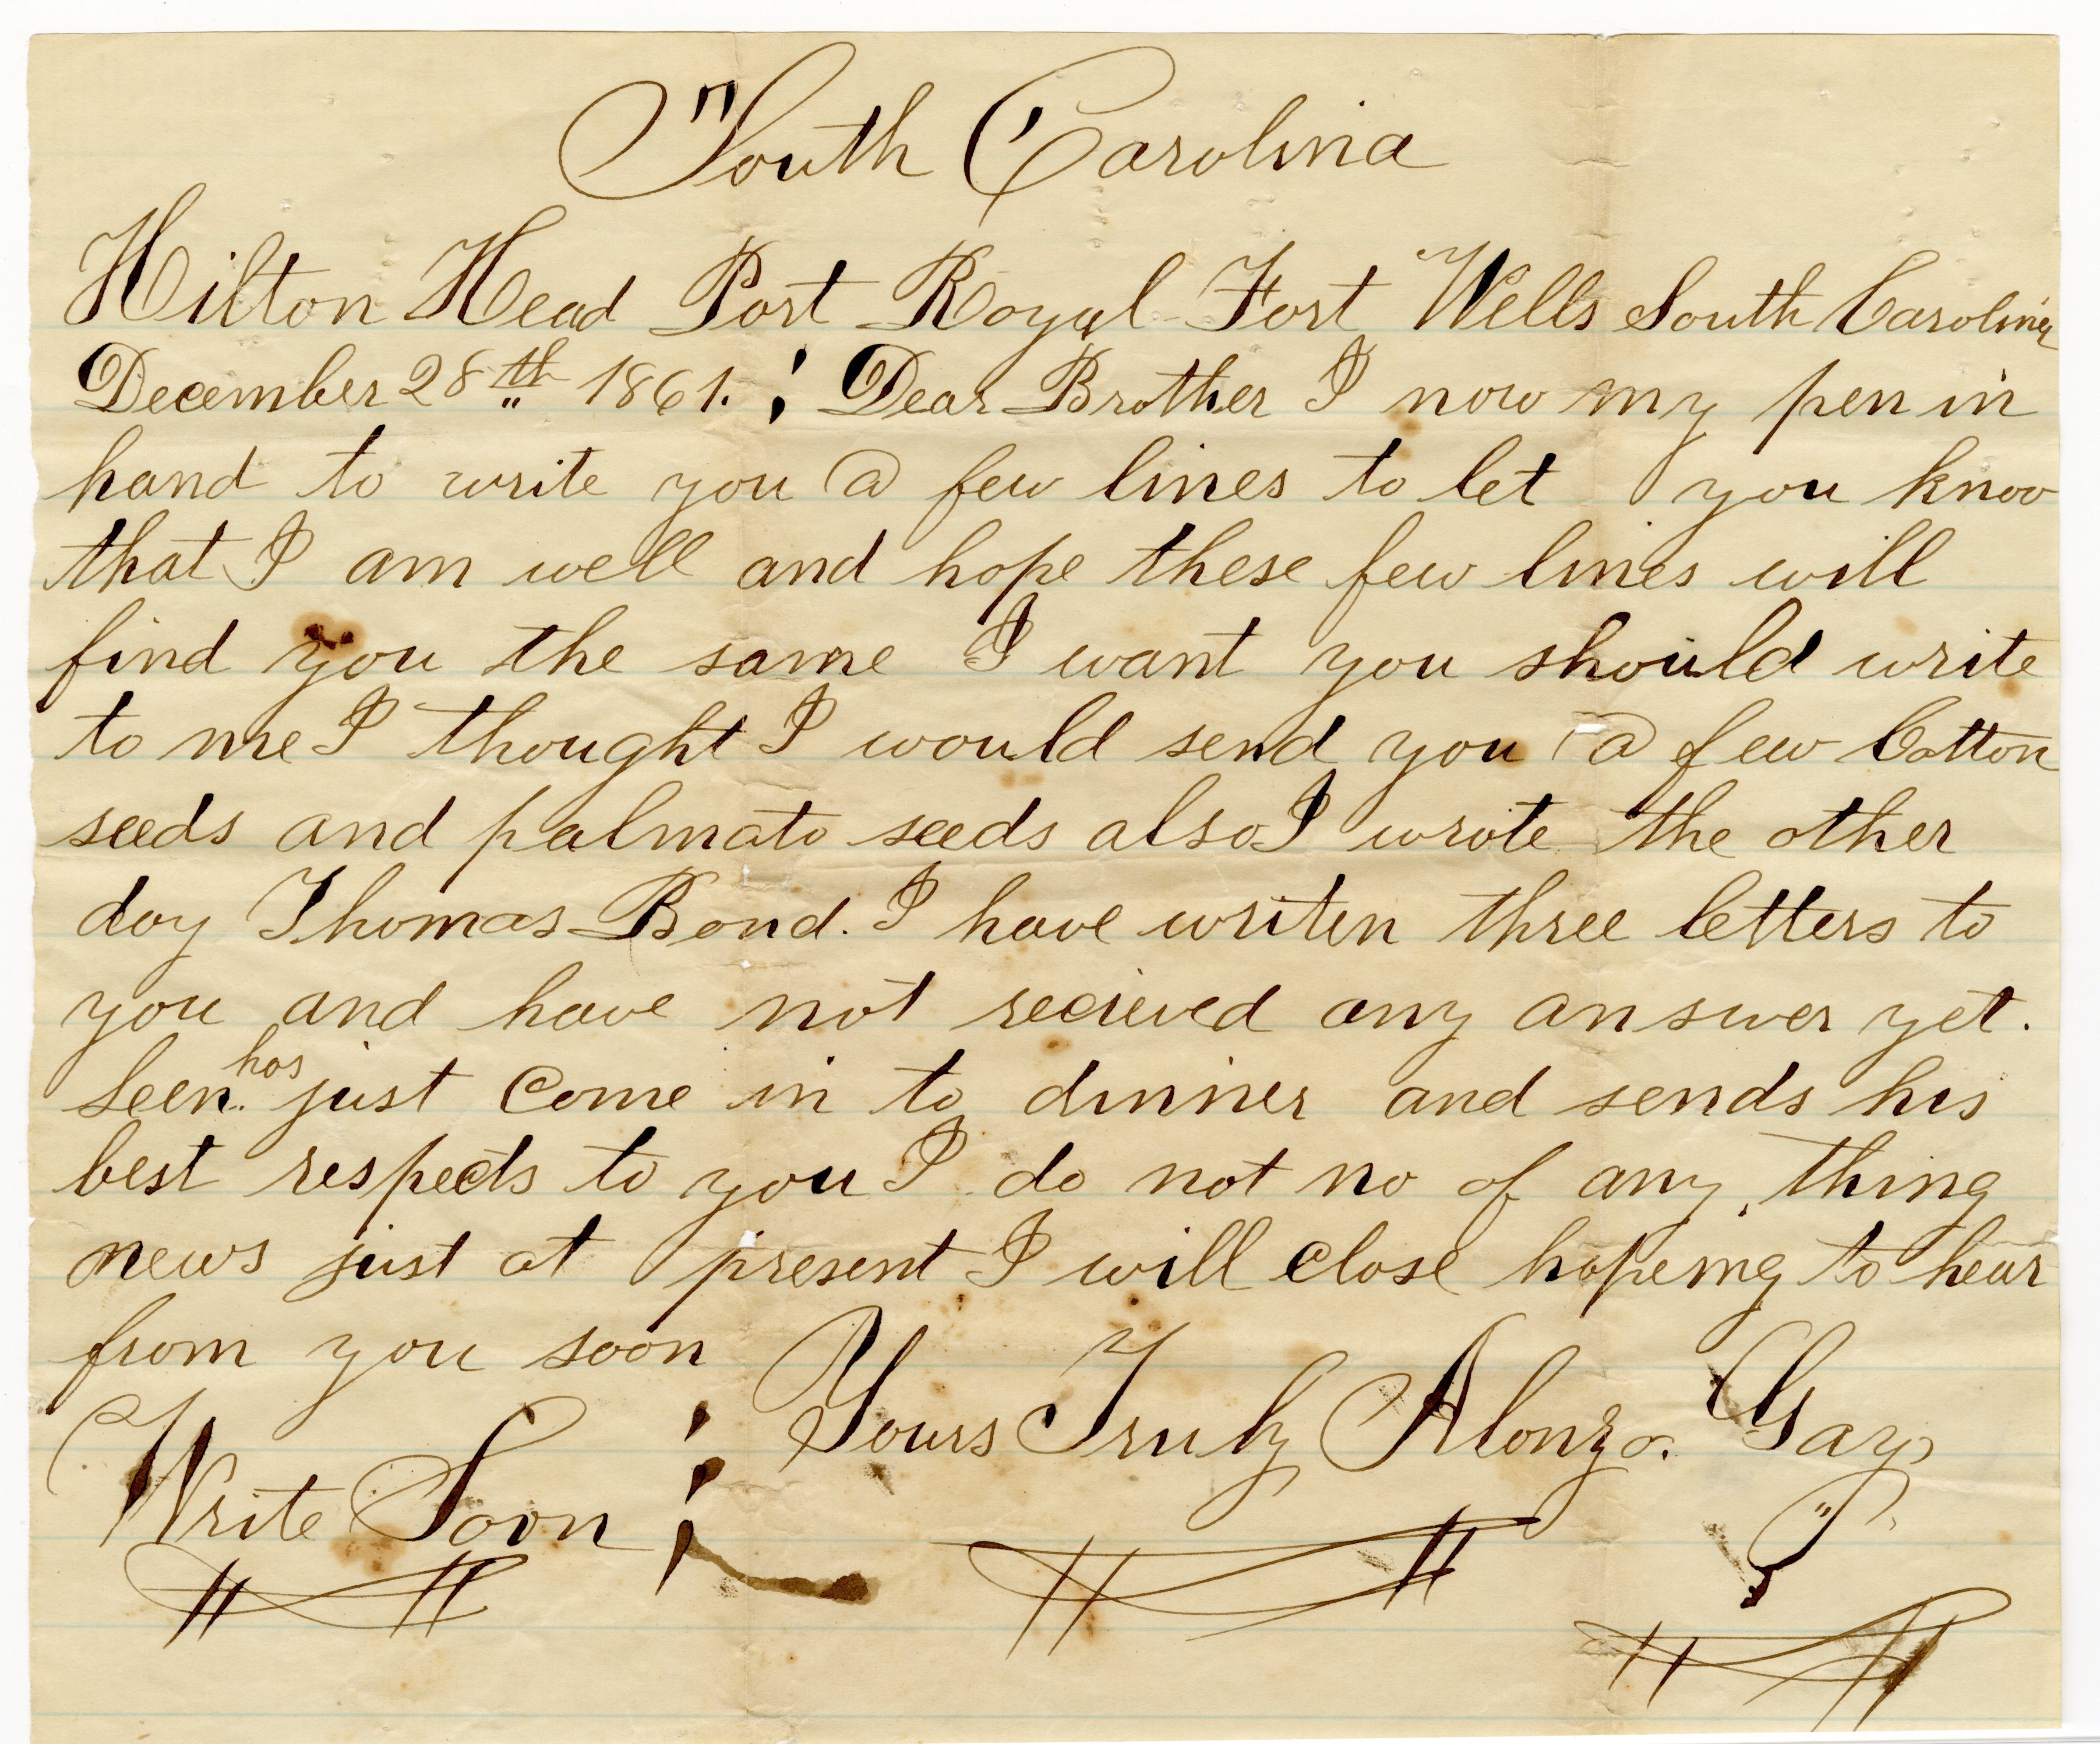 South Carolina
Hilton Head Port Royal Fort Wells South Carolina
December 28th 1861. ; Dear Brother I now my pen in
hand to write you a few lines to let you know
that I am well and hope these few lines will
find you the same I want you should write
to me I thought I would send you a few Cotton
seeds and palmato seeds also I wrote the other
day Thomas Bond. I have writen three letters to
you and have not recieved any answer yet.
Seen. has just Come in to dinner and sends his
best respects to you I do not no of any thing
news just at present I will close hopeing to hear
from you soon
Yours Truly Alonzo. Gay
Write Soon